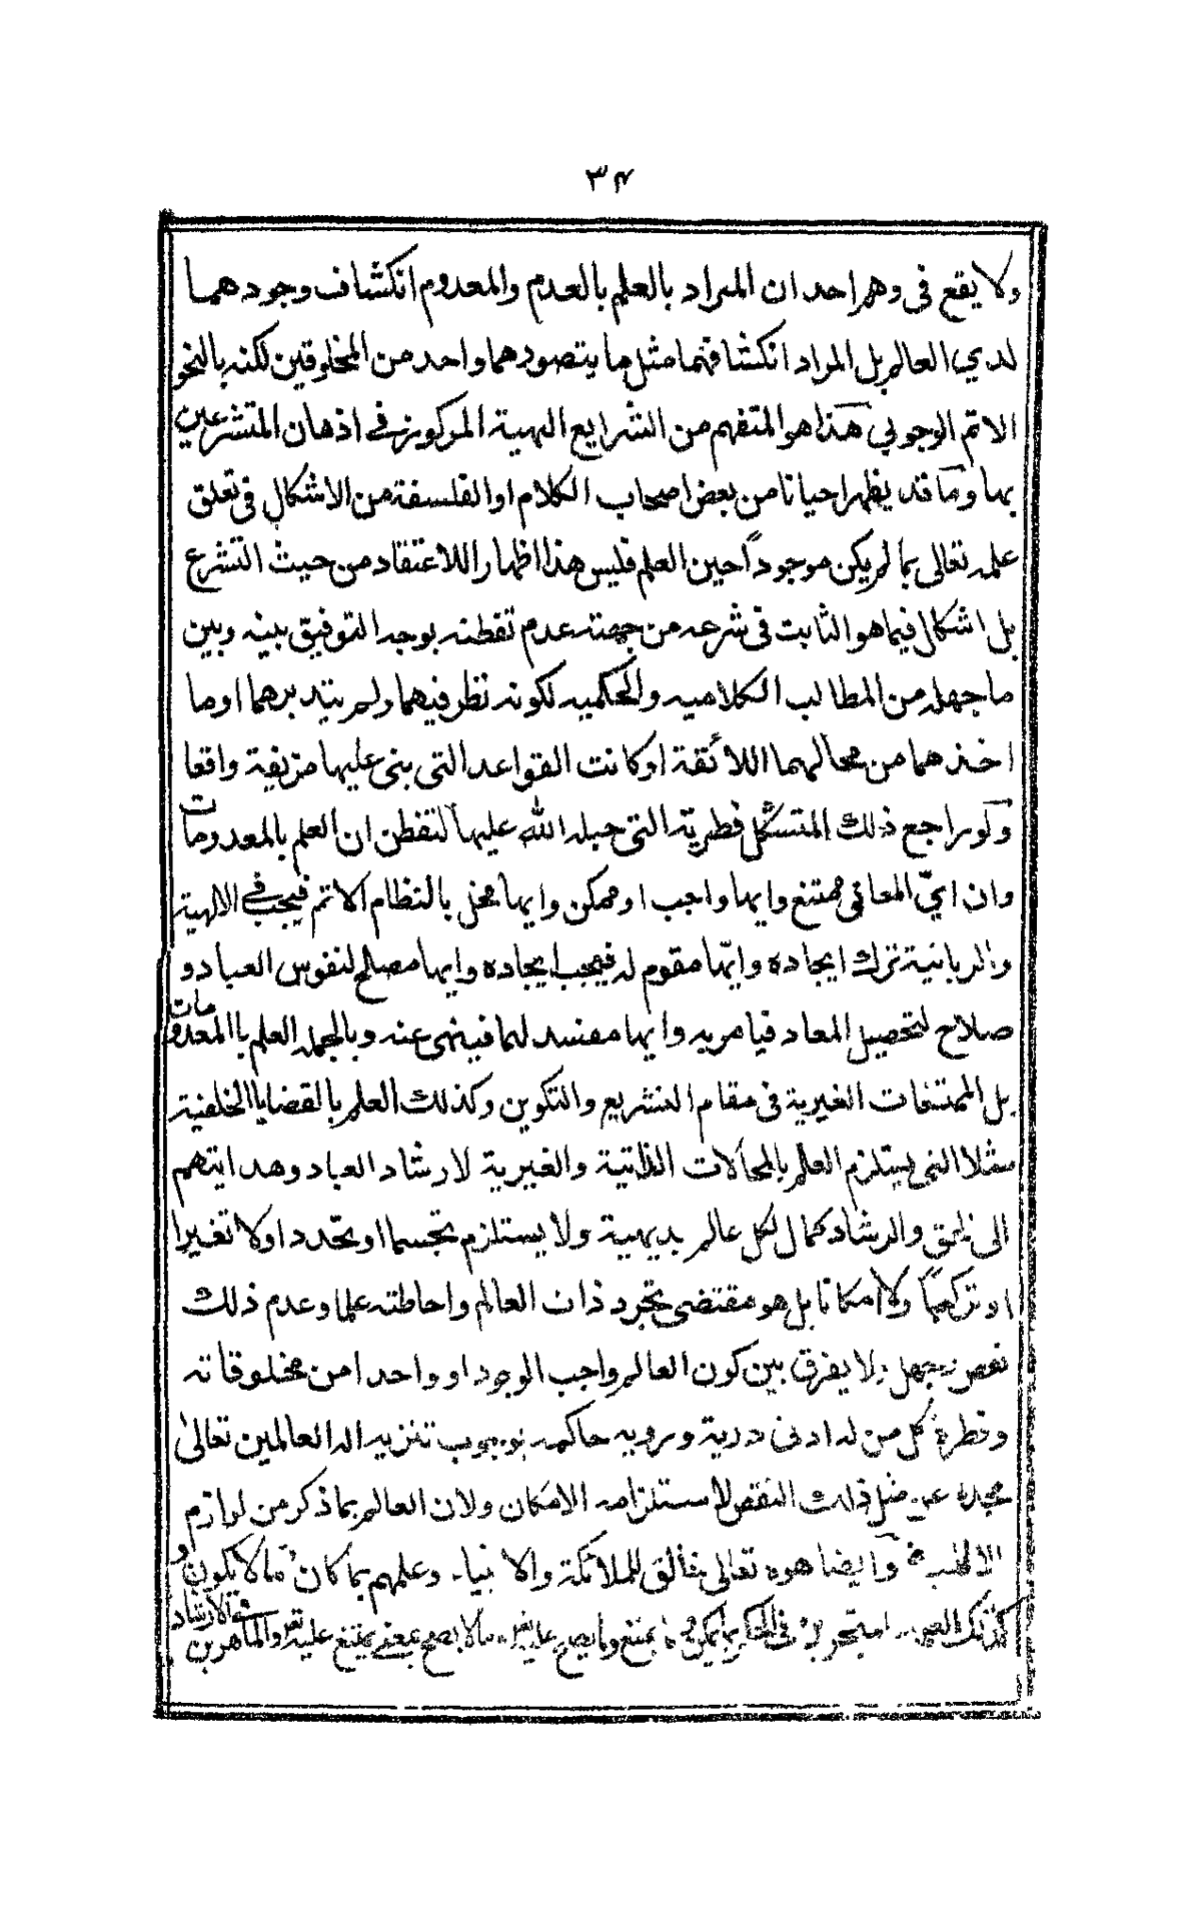 ۳۴
ولا يقع في وهم احد ان المراد بالعلم بالعدم والمعدوم انكشاف وجودهما
لدي العالم بل المراد انكشافهما مثل ما يتصورهما واحد من المخلوقين لكنه بالنحو
الاتم الوجوبي هذا هو المتفهم من الشرايع الهية المركوزة في اذهان المتشرعين
بها وما قد يظهر احيانا من بعض اصحاب الكلام او الفلسفة من الاشكال في تعلق
علمه تعالى بما لم يكن موجوداً حين العلم فليس هذا اظهار اللاعتقاد من حيث التشرع
بل اشكال فيما هو الثابت في شرعه من جهته عدم تفطنه بوجه التوفيق بينه وبين
ما جهله من المطالب الكلاميه والحكميه لكونه نظر فيهما ولم يتدبرهما او ما
اخذهما من محالهما اللائقة او كانت القواعد التي بنى عليها مزيفة واقعا
ولو راجع ذلك المتشكل فطرية التي جبله الله عليها لتفطن ان العلم بالمعدومات
وان اي المعاني ممتنع وايها واجب او ممكن وايها مخل بالنظام الاتم فيجب في الالهية
والربانية ترك ايجاده وايّها مقوم له فيجب ايجاده وايها مصلح لنفوس العباد و
صلاح لتحصيل المعاد فيامر به وايها مفسد لهما فينهى عنه وبالجمله العلم باالمعدومات
بل الممتنعات الغيرية في مقام التشريع والتكوين وكذلك العلم بالقضايا الخلفية
مثلا التي يستلزم العلم بالمحالات الذاتية والغيرية لارشاد العباد وهدايتهم
الى الحق والرشاد كمال لكل عالم بديهية ولا يستلزم تجسما او تحدد او لا تغيرا
او تركيباً ولا امكانا بل هو مقتضى تجرد ذات العالم واحاطته علما وعدم ذلك
نقص وجهل لا يفرق بين كون العالم واجب الوجود او واحدا من مخلوقاته
وفطرة كل من له ادنى درية ورويه حاكمه بوجوب تنزيه اله العالمين تعالى
مجده عن مثل ذلك النقص لاستلزامه الامكان ولان العالم بما ذكر من لوازم
وايضا هوه تعالى خالق للملائكة والانبياء وعلمهم بما كان وما لا يكون و
كذلك في وما يصح عليه وما لا يصح يمتنع عليه في الارشاد والماهرين